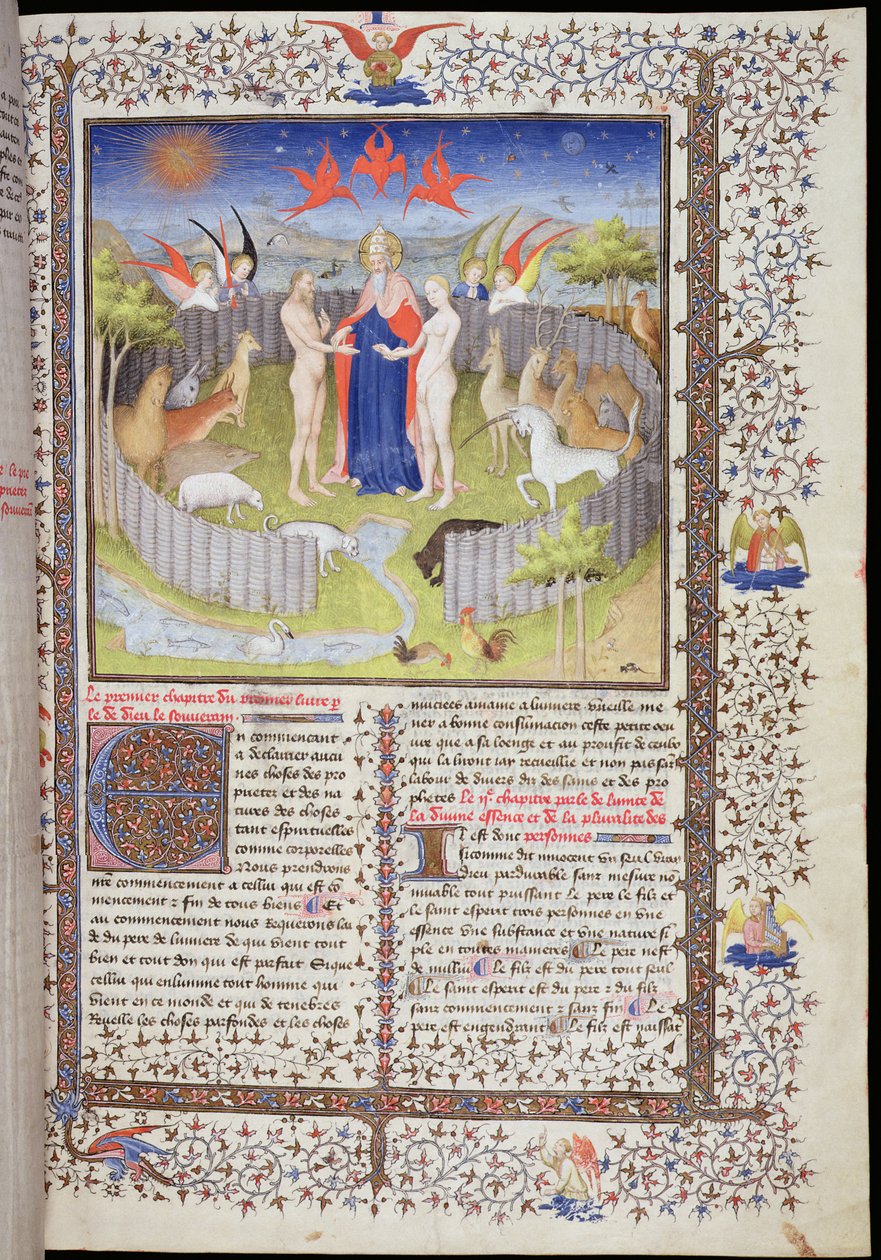 Le premier chapitre du premier livre p
le de dieu le souverain.
En commencant
a declairer aucu
nes choses des pro
prietez et des na
tures des choses
tant espirituelles
comme corporelles
Nous prendrons
nrē commencement a cellui qui est cō
mencement ⁊ fin de tous biens Et
au commencement nous Requerons lai
de du pere de lumiere de qui vient tout
bien et tout don qui est parfait Si que
cellui qui enlumine tout homme qui
vient en ce monde et qui de tenebres
Reuelle les choses parfondes et les choses
muciees amaine a lumiere. vueille me
ner a bonne consumacion ceste petite oeu
ure que a sa loenge et au proufit de ceulx
qui la liront iay recueillie et non pas sās
labour de diuers dis des sains et des pro
phetes Le ijᵉ chapitre parle de lunite de
la diuine essence et de la pluralite des
personnes
Il est donc
sicomme dit innocent vn seul vray
dieu pardurable sans mesure nō
muable tout puissant Le pere le filz et
le saint esperit trois personnes en vne
essence vne substance et vne nature si
ple en toutes manieres Le pere nest
de nullui Le filz est du pere tout seul
Le saint esperit est du pere ⁊ du filz
sanz commencement ⁊ sanz fin Le
pere est engendrant Le filz est naissāt